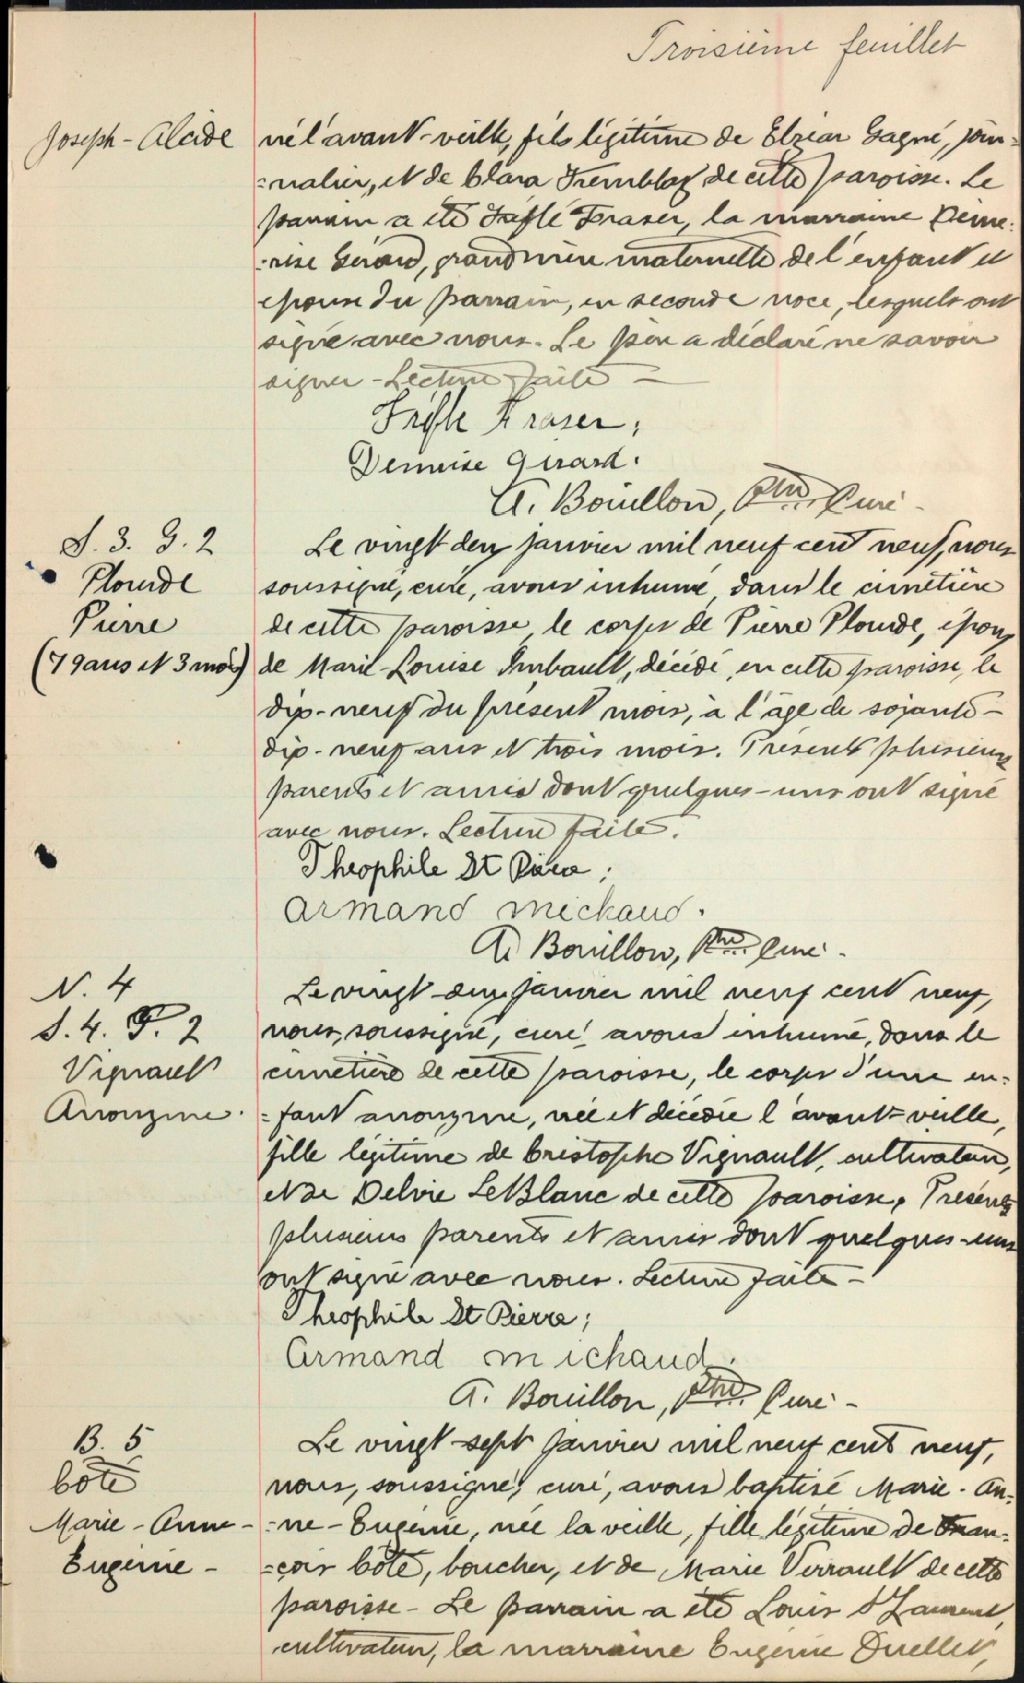 Troisième feuillet
Joseph-Alcide
né l'avant-veille, fils légitime de Elzéar Gagné, jour=
=nalier, et de Clara Tremblay de cette paroisse. Le
parrain a été Trefflé Fraser, la marraine Déme=
=rise Gérard, grand'mère maternelle de l'enfant et
épouse du parrain, en seconde noce, lesquels ont
signé avec nous. Le père a déclaré ne savoir
signer - Lecture faite -
Trefle Fraser;
Demerise Girard.
A. Bouillon, ptre Curé -
S. 3. G. 2
Plourde
Pierre
(79 ans et 3 mois)
Le vingt deux janvier mil neuf cent neuf, nous
soussigné, curé, avons inhumé, dans le cimetière
de cette paroisse, le corps de Pierre Plourde, époux
de Marie-Louise Imbault, décédé, en cette paroisse, le
dix-neuf du présent mois, à l'âge de soixante-
dix-neuf ans et trois mois. Présents plusieurs
parents et amis dont quelques-uns ont signé
avec nous. Lecture faite.
Theophile St Pierre;
Armand Michaud.
A. Bouillon, ptre Curé -
N. 4
S. 4. F. 2
Vignault
Anonyme.
Le vingt-deux janvier mil neuf cent neuf,
nous, soussigné, curé, avons inhumé, dans le
cimetière de cette paroisse, le corps d'une en=
=fant anonyme, née et décédée l'avant-veille,
fille légitime de Cristophe Vignault, cultivateur,
et de Delvie LeBlanc de cette paroisse. Présents
plusieurs parents et amis dont quelques-uns
ont signé avec nous. Lecture faite -
Theophile St Pierre;
Armand Michaud.
A. Bouillon, ptre Curé -
B. 5
Côté
Marie-Anne-
Eugénie -
Le vingt-sept janvier mil neuf cent neuf,
nous, soussigné, curé, avons baptisé Marie-An=
=ne-Eugénie, née la veille, fille légitime de Fran=
=çois Côté, boucher, et de Marie Verrault de cette
paroisse - Le parrain a été Louis St Laurent,
cultivateur, la marraine Eugénie Ouellet,